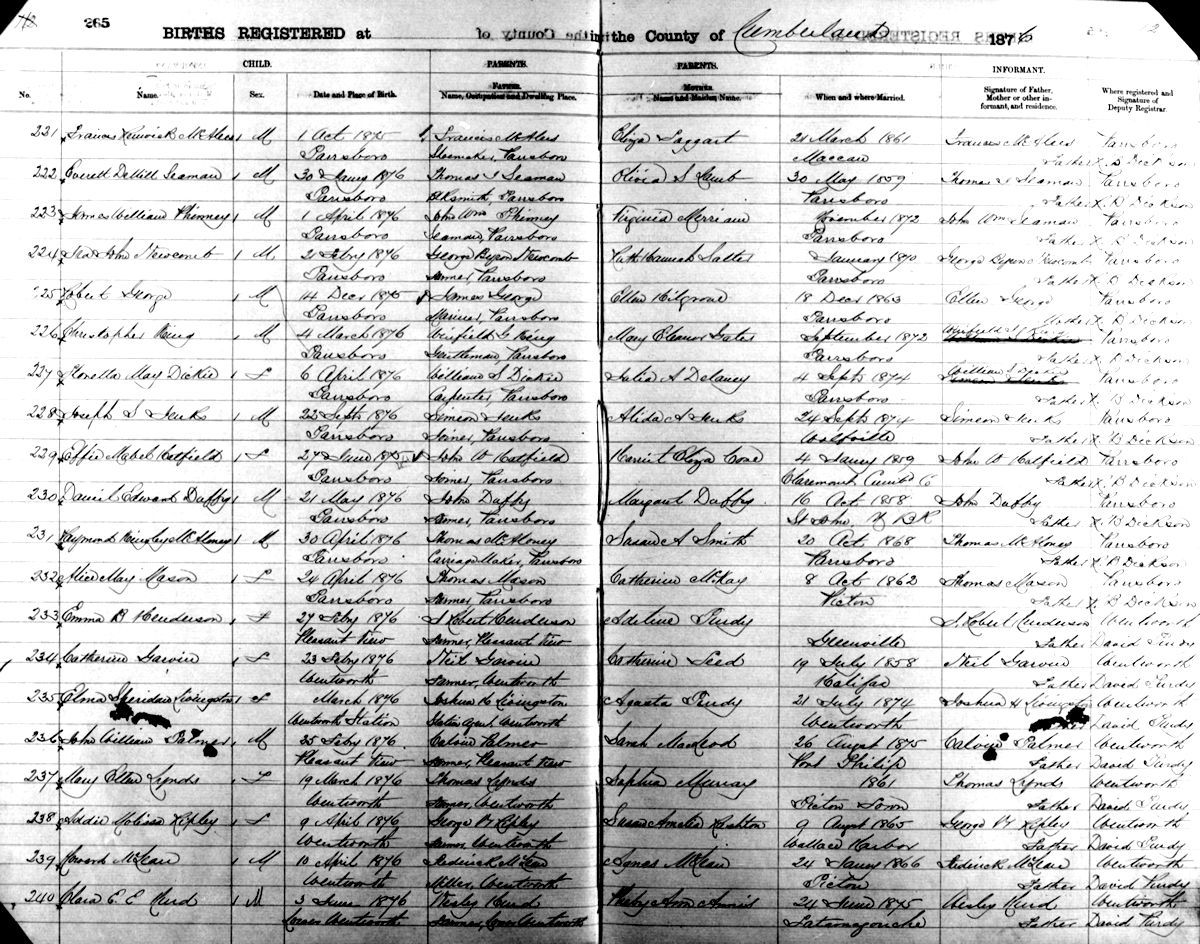 265
BIRTHS REGISTERED at in the County of Cumberland 1876
CHILD. PARENTS. PARENTS. INFORMANT.
No. Name. Sex. Date and Place of Birth. Father. Name, Occupation and Dwelling Place. Mother. Name and Maiden Name. When and where Married. Signature of Father, Mother or other informant, and residence. Where registered and Signature of Deputy Registrar.
231 Francis McAleese M 1 Oct 1875 Francis McAleese Eliza Taggart 21 March 1861 Francis McAleese Parrsboro
Parrsboro Shoemaker, Parrsboro Maccan Father Dickson
222 Everett DeMill Seaman M 30 Jany 1876 Thomas Seaman Olivia S 30 May 1859 Thomas Seaman Parrsboro
Parrsboro Blksmith, Parrsboro Parrsboro Father Dickson
223 James William Phinney M 1 April 1876 John Wm Phinney Virginia Merriam November 1872 John Wm Seaman Parrsboro
Parrsboro Seaman, Parrsboro Parrsboro Father Dickson
224 John Newcomb M 21 Feby 1876 George Byron Newcomb Hannah Salter January 1870 George Byron Newcomb Parrsboro
Parrsboro Farmer, Parrsboro Parrsboro Father Dickson
225 Robert George M 14 Decr 1875 James George Ellen Kilgrove 18 Decr 1863 Ellen George Parrsboro
Parrsboro Mariner, Parrsboro Parrsboro Mother Dickson
226 Christopher King M 4 March 1876 Winfield King Mary Eleanor Gates September 1872 Parrsboro
Parrsboro Gentleman, Parrsboro Parrsboro Father Dickson
227 Florella May Dickie F 6 April 1876 William S Dickie Julia A Delaney 4 Sept 1874 Parrsboro
Parrsboro Carpenter Parrsboro Parrsboro Father Dickson
228 Joseph S Jenks M 22 Sept 1876 Simeon Jenks Alida A Jenks 24 Sept 1874 Simeon Jenks Parrsboro
Parrsboro Farmer, Parrsboro Wolfville Father Dickson
229 Effie Mabel Hatfield F 27 June 1875 John W Hatfield Harriet Eliza Cove 4 Jany 1859 John W Hatfield Parrsboro
Parrsboro Farmer, Parrsboro Claremont Cumbd Co Father Dickson
230 Daniel Edward Duffy M 21 May 1876 John Duffy Margaret Duffy 16 Oct 1858 John Duffy Parrsboro
Parrsboro Farmer, Parrsboro St John, N BK Father Dickson
231 Raymond McAloney M 30 April 1876 Thomas McAloney Susan A Smith 20 Oct 1868 Thomas McAloney Parrsboro
Parrsboro Carriage Maker, Parrsboro Parrsboro Father Dickson
232 Alice May Mason F 24 April 1876 Thomas Mason Catherine McKay 8 Oct 1862 Thomas Mason Parrsboro
Parrsboro Farmer Parrsboro Pictou Father Dickson
233 Emma Henderson F 27 Feby 1876 Robert Henderson Adeline Purdy Robert Henderson Wentworth
Pleasant View Farmer, Pleasant View Greenville Father David Purdy
234 Catherine Garvin F 23 Feby 1876 Neil Garvin Catherine Seed 19 July 1858 Neil Garvin Wentworth
Wentworth Farmer, Wentworth Halifax Father David Purdy
235 Elma Sheridan Livingston F March 1876 Joshua H Livingston Agasta Purdy 21 July 1874 Joshua H Livingston Wentworth
Wentworth Station Station Agent, Wentworth Wentworth David Purdy
236 John William Palmer M 25 Feby 1876 Calvin Palmer Sarah MacLeod 26 Augst 1875 Calvin Palmer Wentworth
Pleasant View Farmer, Pleasant View Port Philip Father David Purdy
237 Mary Ellen Lynds F 19 March 1876 Thomas Lynds Sophia Murray 1861 Thomas Lynds Wentworth
Wentworth Farmer, Wentworth Pictou Town Father David Purdy
238 Addie Melissa Ripley F 9 April 1876 George Ripley Susan Amelia Rushton 9 Augst 1865 George Ripley Wentworth
Wentworth Farmer Wentworth Wallace Harbor Father David Purdy
239 Howard McLean M 10 April 1876 Rederick McLean Agnes McLean 24 Jany 1866 Rederick McLean Wentworth
Wentworth Miller, Wentworth Pictou Father David Purdy
240 Clara E. E. Hurd M 3 June 1876 Wesley Hurd Pheby Ann Annis 24 June 1875 Wesley Hurd Wentworth
Lower Wentworth Farmer, Lower Wentworth Tatamagouche Father David Purdy